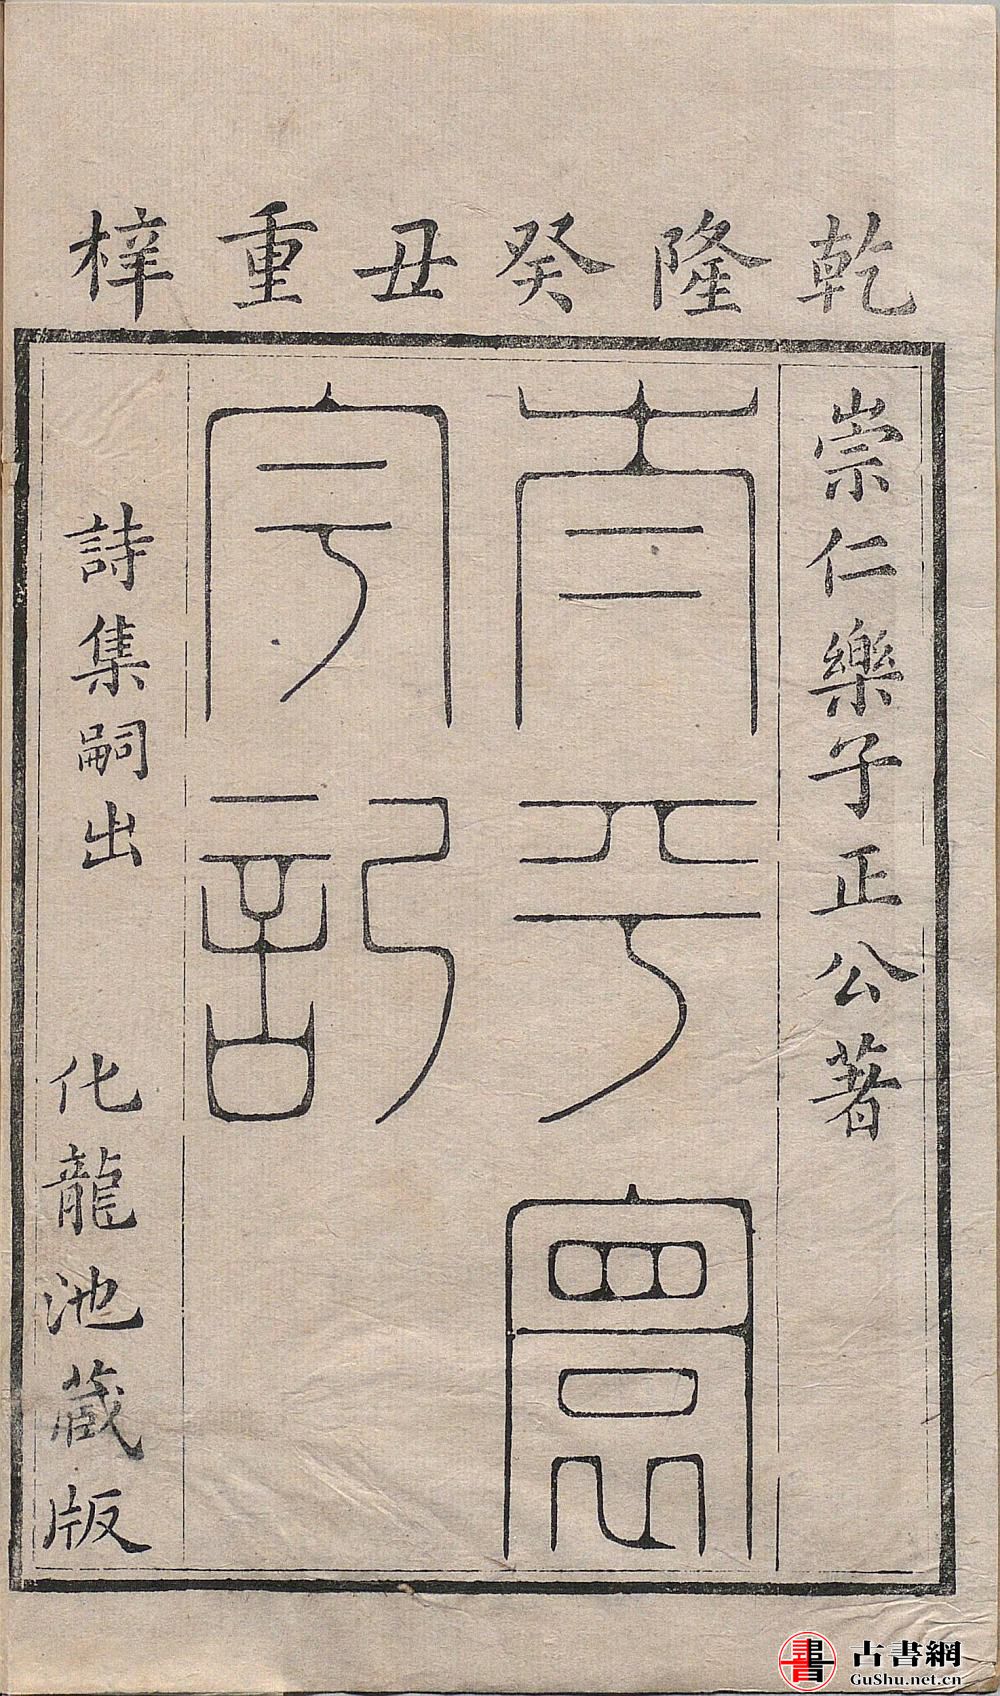 乾隆癸丑重梓
崇仁樂子正公著
太平寰
宇記
詩集嗣出 化龍池藏版
書 古書網
GuShu.net.cn